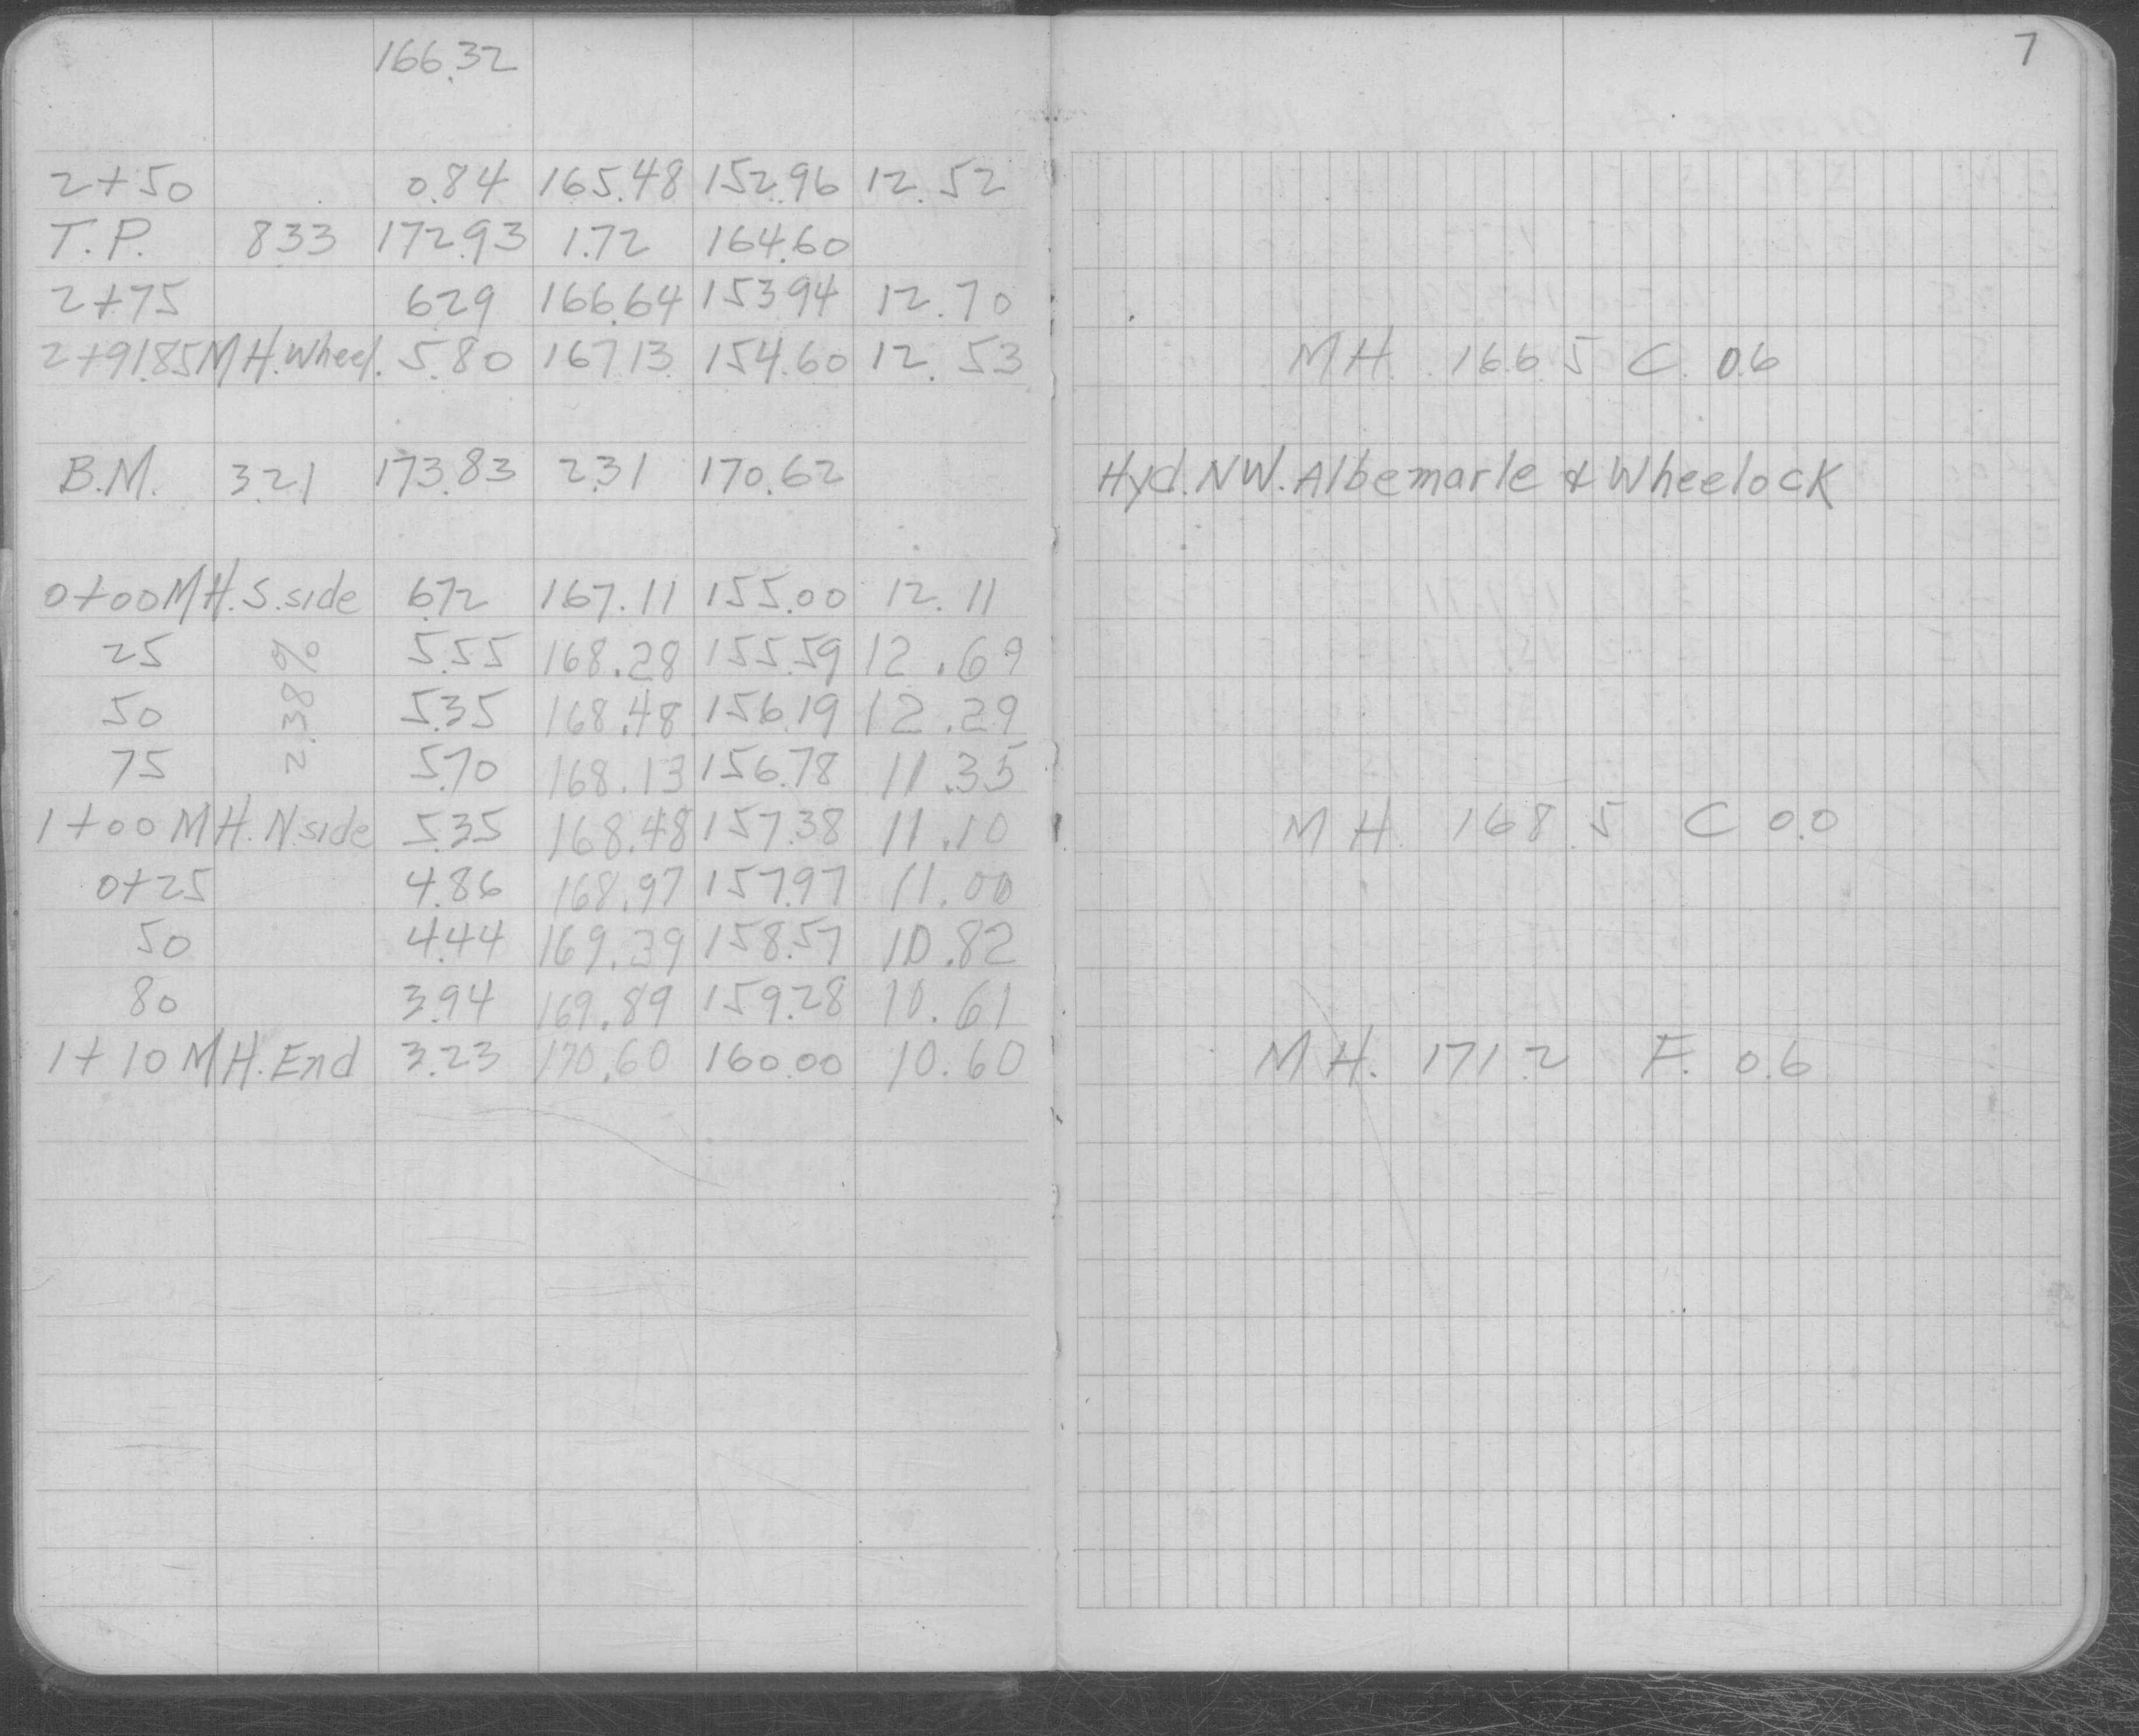 7
166.32
2+50 0.84 165.48 152.96 12.52
T.P. 8.33 172.93 1.72 164.60
2+75 6.29 166.64 153.94 12.70
2+91.85 MH. Wheel. 5.80 167.13 154.60 12.53 MH. 166.5 C. 0.6
B.M. 3.21 173.83 2.31 170.62 Hyd. NW. Albemarle & Wheelock
0+00 MH. S. side 6.72 167.11 155.00 12.11
25 5.55 168.28 155.59 12.69
50 5.35 168.48 156.19 12.29
2.38%
75 5.70 168.13 156.78 11.35
1+00 MH. N side 5.35 168.48 157.38 11.10 MH. 168.5 C 0.0
0+25 4.86 168.97 157.97 11.00
50 4.44 169.39 158.57 10.82
80 3.94 169.89 159.28 10.61
1+10 MH. End 3.23 170.60 160.00 10.60 MH. 171.2 F. 0.6